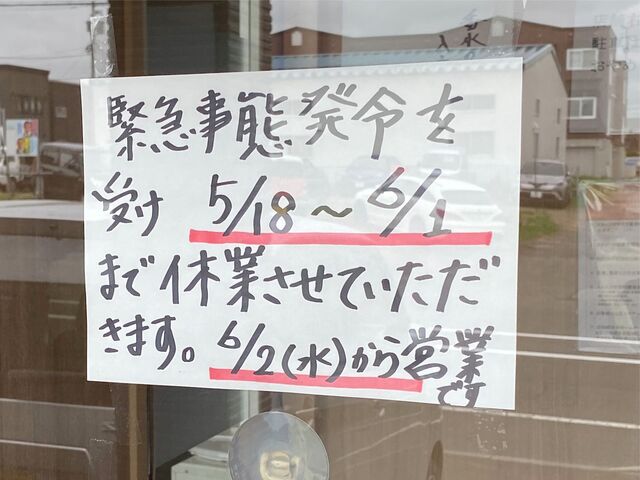 緊急事態発令を
受け 5/18～6/1
まで休業させていただ
きます。6/2(水)から営業
です